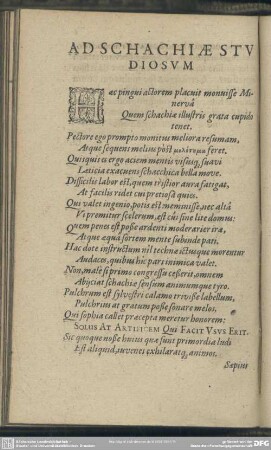 AD SCHACHIÆ STV
DIOSVM
Haec pingui actorem placuit monuisse Mi-
nervâ
Quem schachiæ illustris grata cupido
tenet.
Pectore ego prompto monitus meliora resumam,
Atque sequens melius pòst feret.
Quisquis es ergo aciem mentis visusq, suavi
Læticia exacuens schacchica bella move.
Difficilis labor est, quem tristior aura fatigat,
At facilis ridet cui pretiosa quies.
Qui valet ingenio, potis est meminisse, nec altâ
Vi premitur scelerum, est cui sine lite domus:
Quem penes est posse ardenti moderarier ira,
Atque æquâ sortem mente subinde pati.
Hac dote instructum nil technæ ictusque morentur
Audaces, quibus hic par inimica valet.
Non, malè si primo congressu cesserit, omnem
Abijciat schachiæ sensum animumque tyro.
Pulchrum est sylvestri calamo trivisse labellum,
Pulchrius at gratum posse sonare melos.
Qui sophia callet præcepta meretur honorem:
SOLUS AT ARTIFICEM QUI FACIT VSVS ERIT.
Sic quoque nosse huius quæ sunt primordia ludi
Est aliquid, iuvenes exhilaratq, animos.
Sæpius
DFG